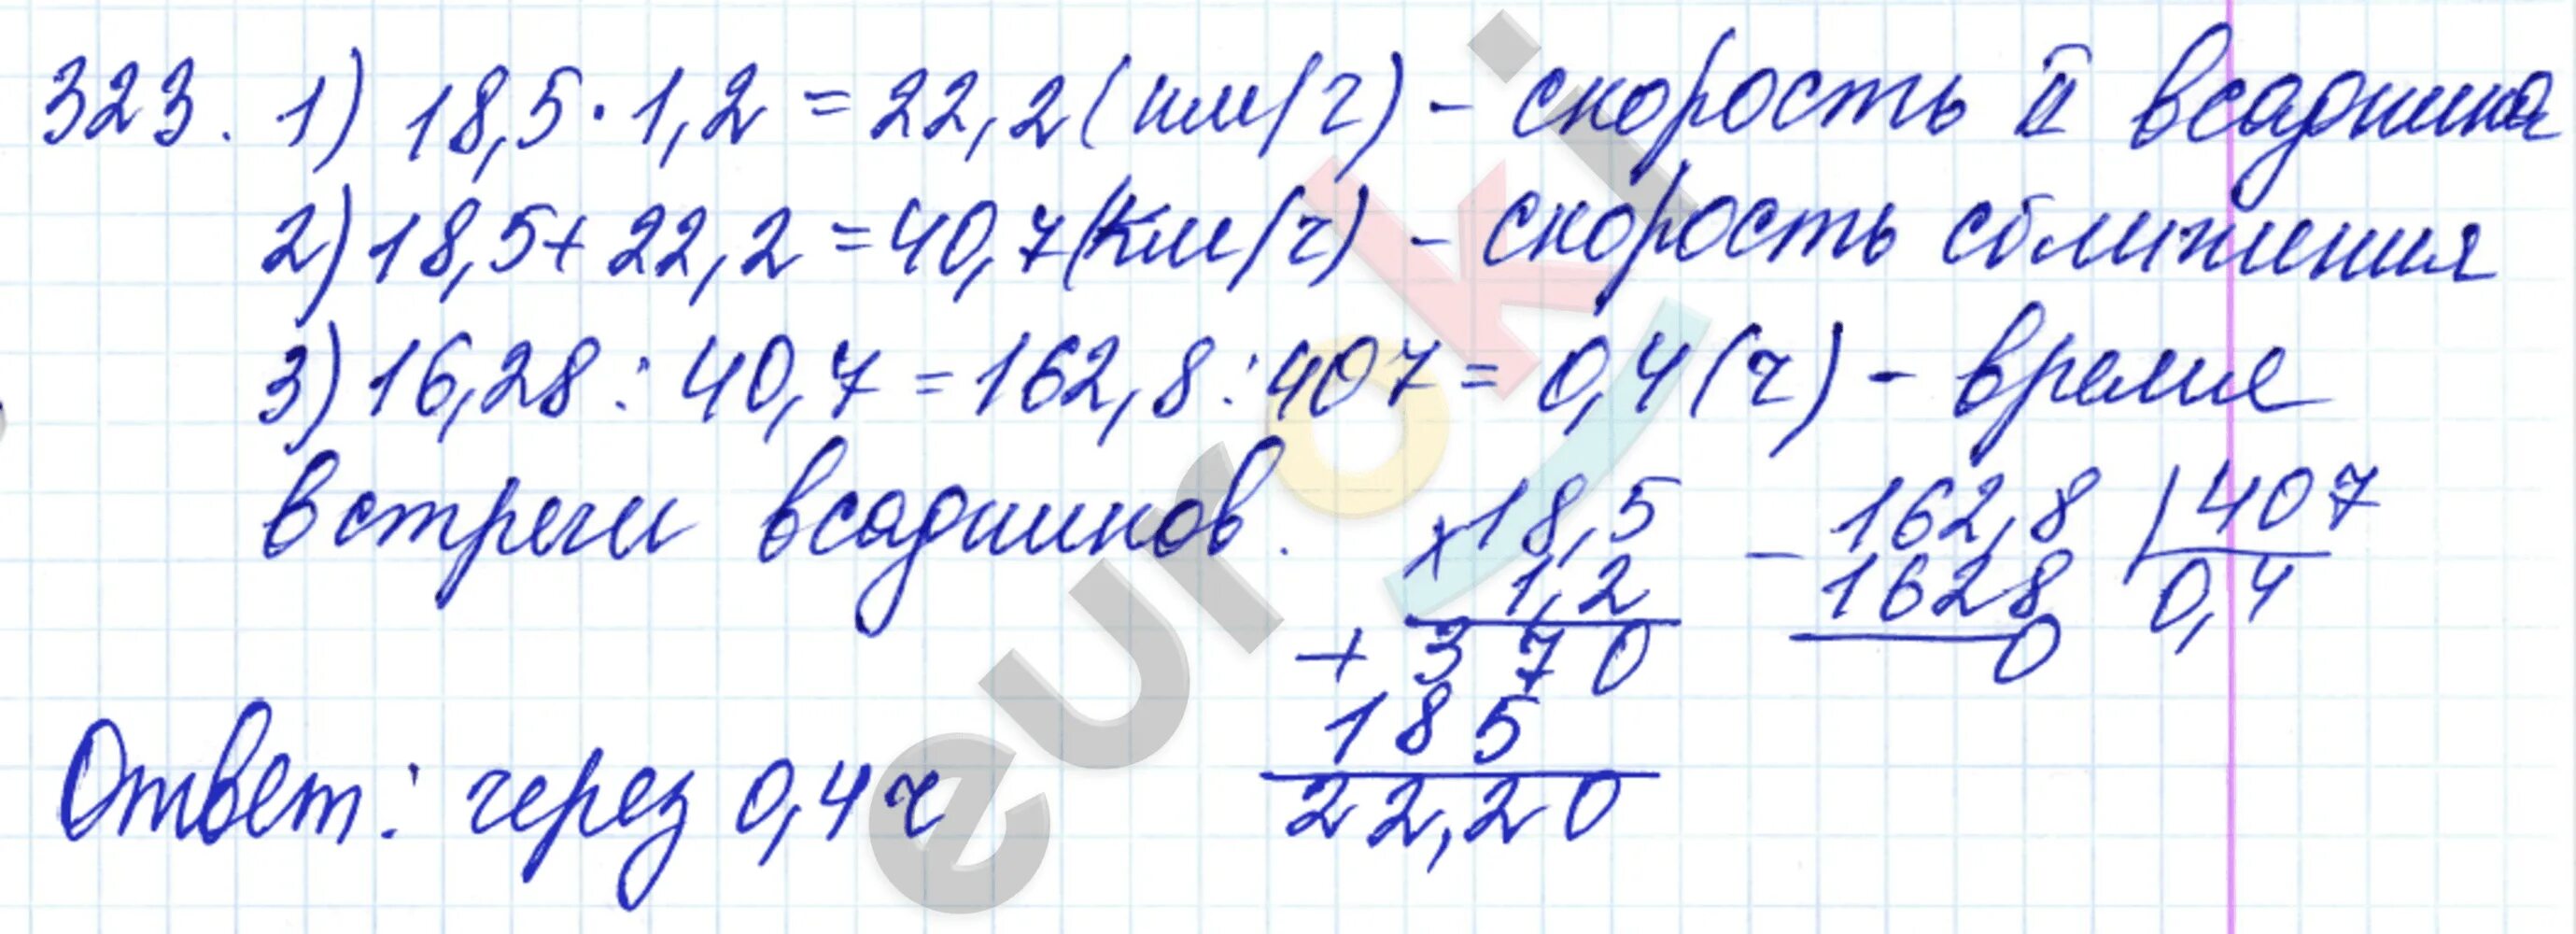 323. 1) 18,5 · 1,2 = 22,2 (км/ч) - скорость II всадника
2) 18,5 + 22,2 = 40,7 (км/ч) - скорость сближения
3) 16,28 : 40,7 = 162,8 : 407 = 0,4 (ч) - время
встречи всадников.
×18,5
1,2
+ 370
185
22,20
− 162,8 | 407
1628 0,4
0
Ответ: через 0,4 ч
euroki